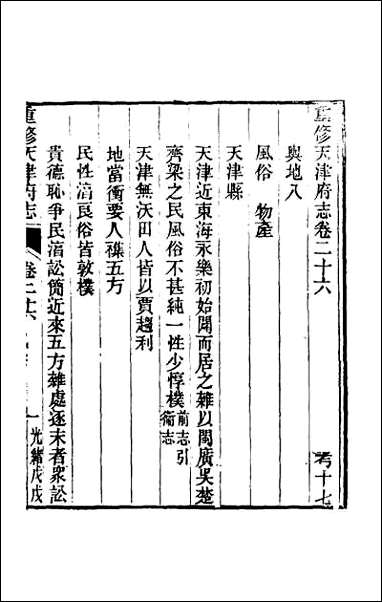 重修天津府志卷二十六 考十七
輿地八
風俗 物產
天津縣
天津近東海永樂初始闢而居之雜以閩廣吳楚
齊梁之民風俗不甚純一性少惇樸前志引衞志
天津無沃田人皆以賈趨利
地當衝要人襍五方
民性淳良俗皆敦樸
貴德恥爭民淳訟簡近來五方雜處逐末者衆訟
重修天津府志 卷二十六 光緒戊戌